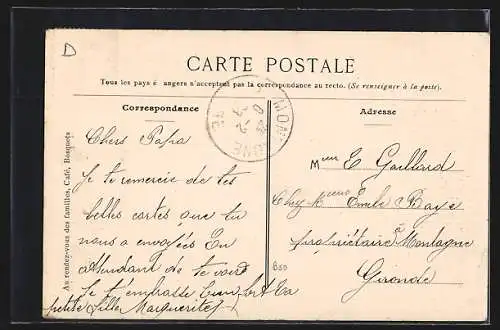 D
CARTE POSTALE
Tous les pays é angers n'acceptent pas la correspondance au recto. (Se renseigner à la poste).
Correspondance
Adresse
MONTAGNE
Au rendez-vous des familles, Café, Bosquets
Chers Papa
Je te remercie de tes
belles cartes que tu
nous a envoyées En
attendant de te voir
Je t'embrasse Ta
petite fille Marguerite
Mme E Gaillard
Chez Mr Emile Baye
propriétaire à Montagne
Gironde